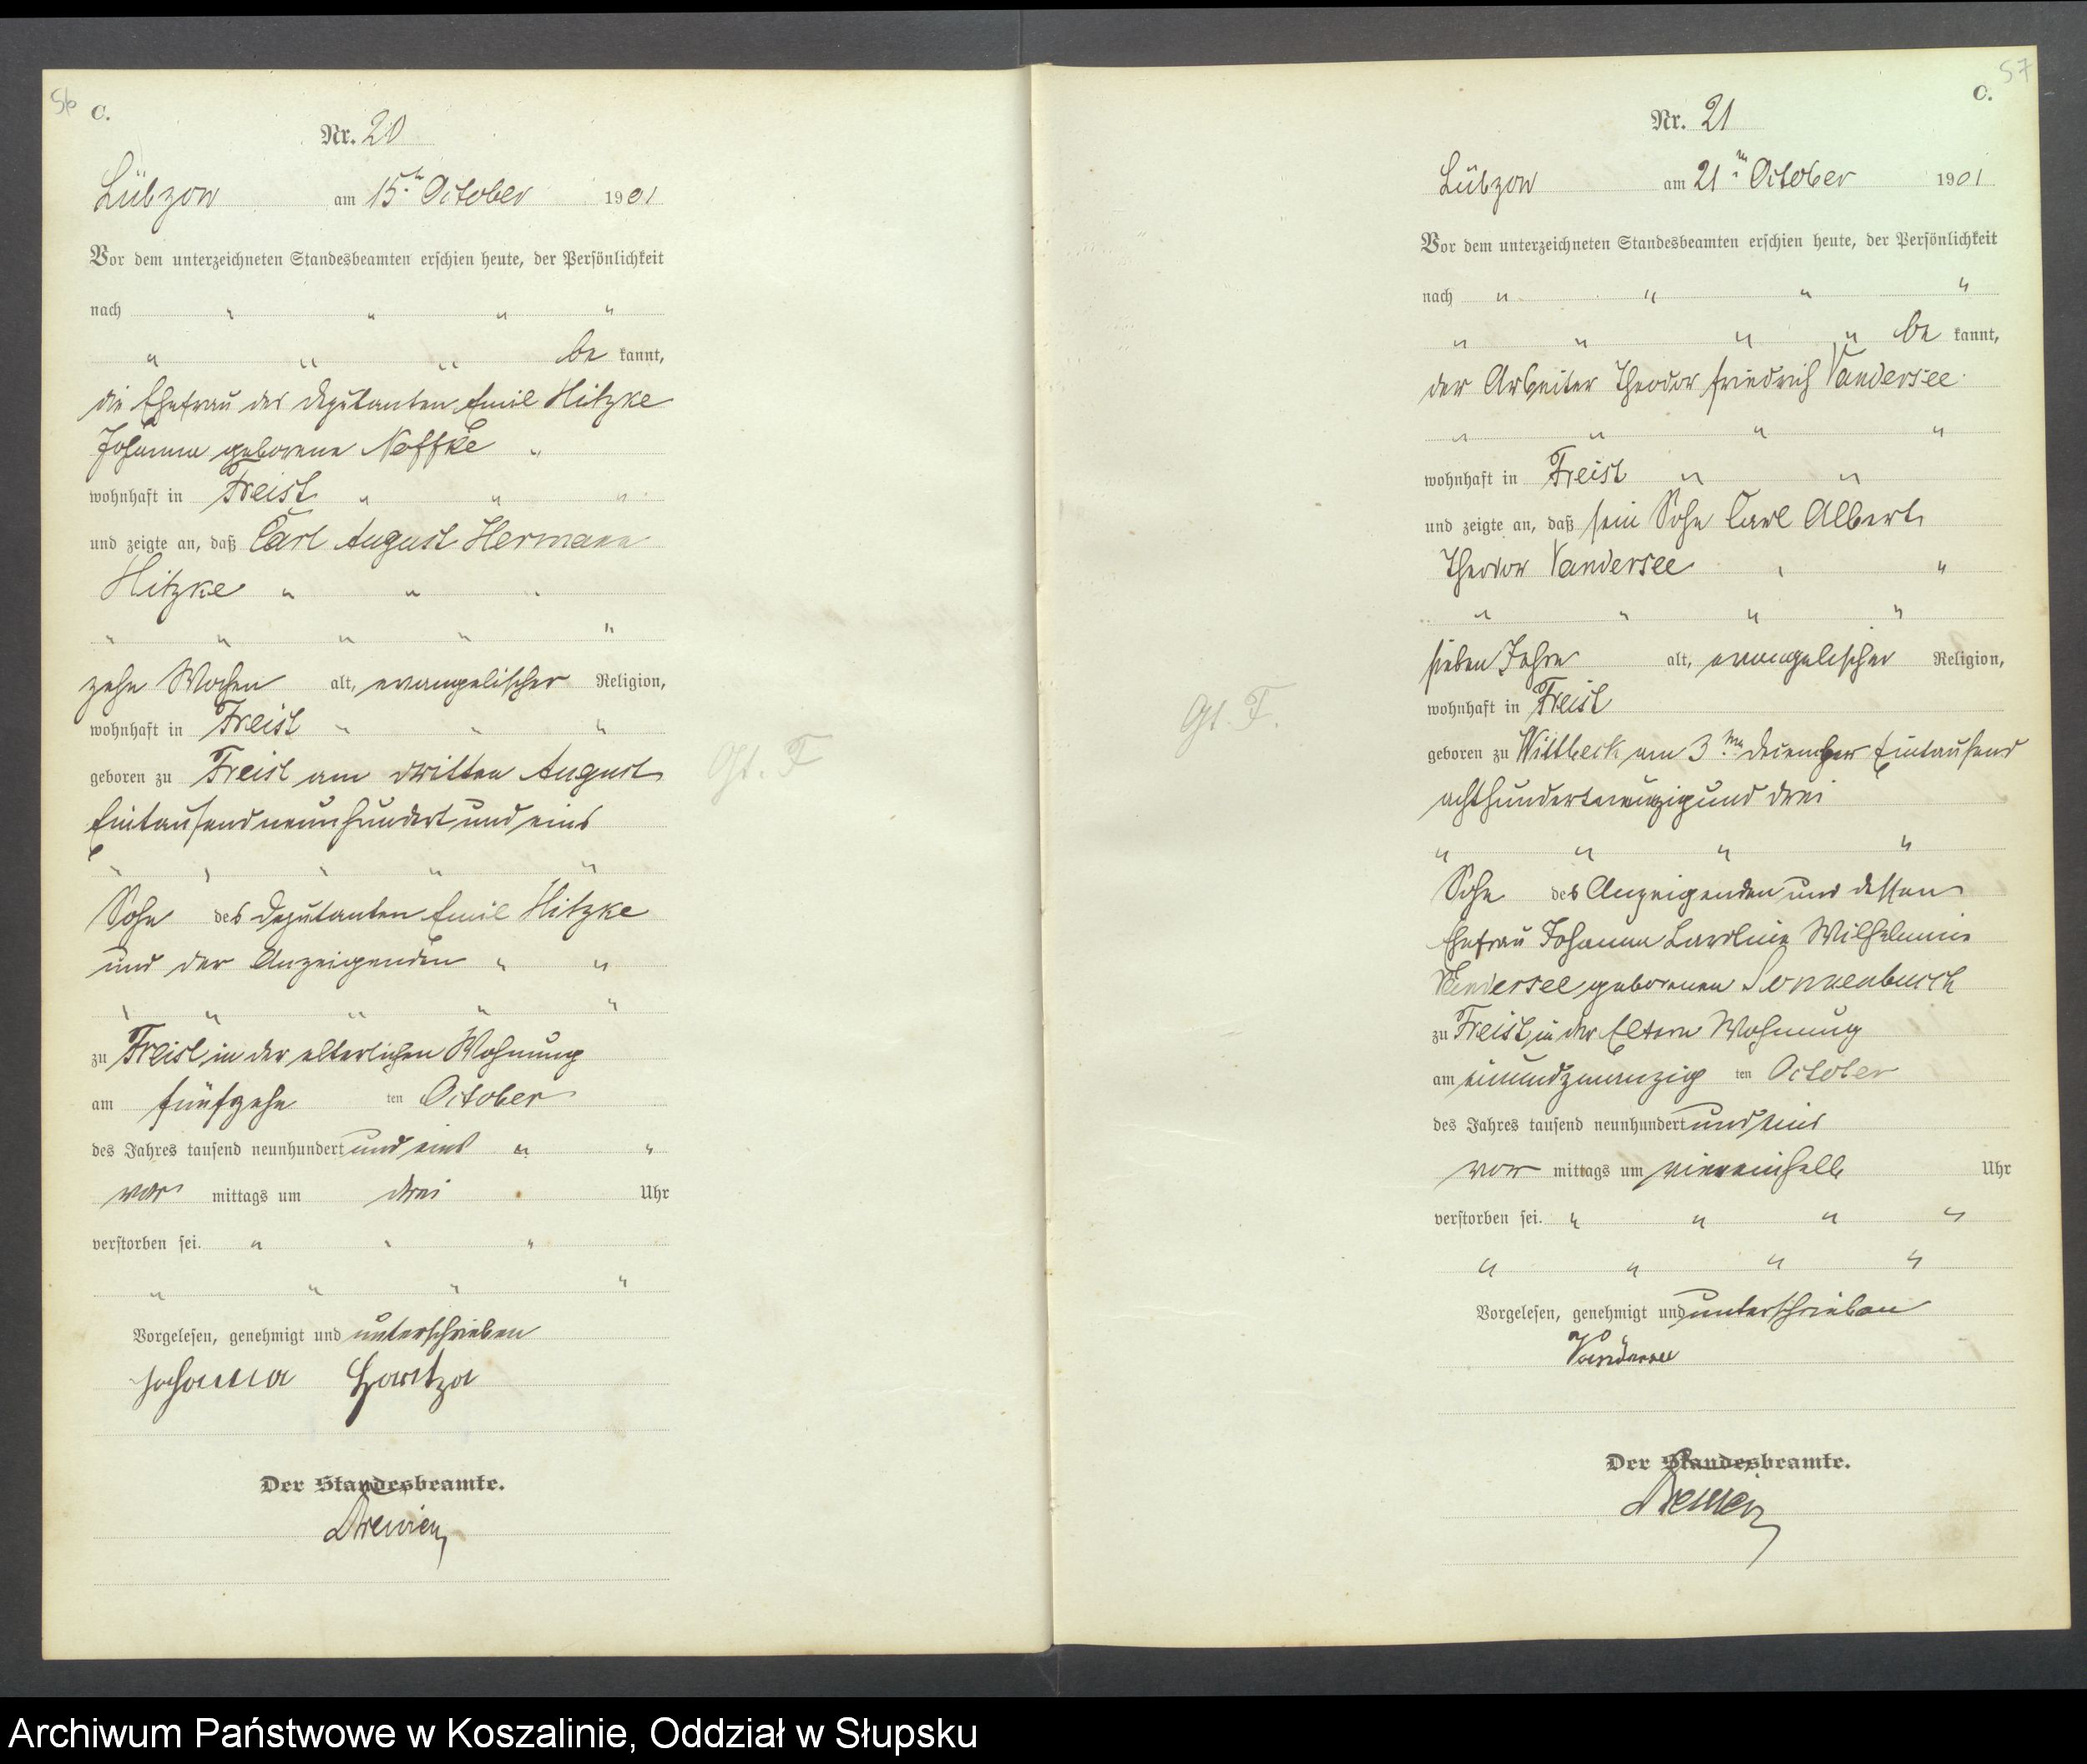 56
C.
Nr. 20
Lübzow am 15.ten October 1901
Vor dem unterzeichneten Standesbeamten erschien heute, der Persönlichkeit
nach " " " "
" " " be kannt,
die Ehefrau des Deputanten Emil Hitzke
Johanna geborene Noffke "
wohnhaft in Freist " " "
und zeigte an, daß Carl August Hermann
Hitzke " " "
" " " " "
zehn Wochen alt, evangelischer Religion,
wohnhaft in Freist " " "
geboren zu Freist am dritten August
Eintausendneunhundert und eins
" " " " "
Sohn des Deputanten Emil Hitzke
und der Anzeigenden " "
" " " " "
zu Freist, in der elterlichen Wohnung
am fünfzehn ten October
des Jahres tausend neunhundert und eins " "
vor mittags um drei Uhr
verstorben sei. " " "
" " " "
Vorgelesen, genehmigt und unterschrieben
Johanna
Der Standesbeamte.
Gs. F
57
C.
Nr. 21
Lübzow am 21.ten October 1901
Vor dem unterzeichneten Standesbeamten erschien heute, der Persönlichkeit
nach " " " "
" " " " be kannt,
der Arbeiter Theodor Friedrich Vandersee
" " " "
wohnhaft in Freist " "
und zeigte an, daß sein Sohn Carl Albert
Theodor Vandersee " "
" " " "
sieben Jahre alt, evangelischer Religion,
wohnhaft in Freist
geboren zu Wittbeck am 3ten December Eintausend
achthundertneunzigund drei
" " " "
Sohn des Anzeigenden und dessen
Ehefrau Johanna Karoline Wilhelmine
Vandersee geborenen Sonnenbusch
zu Freist, in der Eltern Wohnung
am einundzwanzig ten October
des Jahres tausend neunhundert und eins
vor mittags um viereinhalb Uhr
verstorben sei. " " " "
" " " "
Vorgelesen, genehmigt und unterschrieben
Vandersee
Der Standesbeamte.
Gs. F.
Archiwum Państwowe w Koszalinie, Oddział w Słupsku